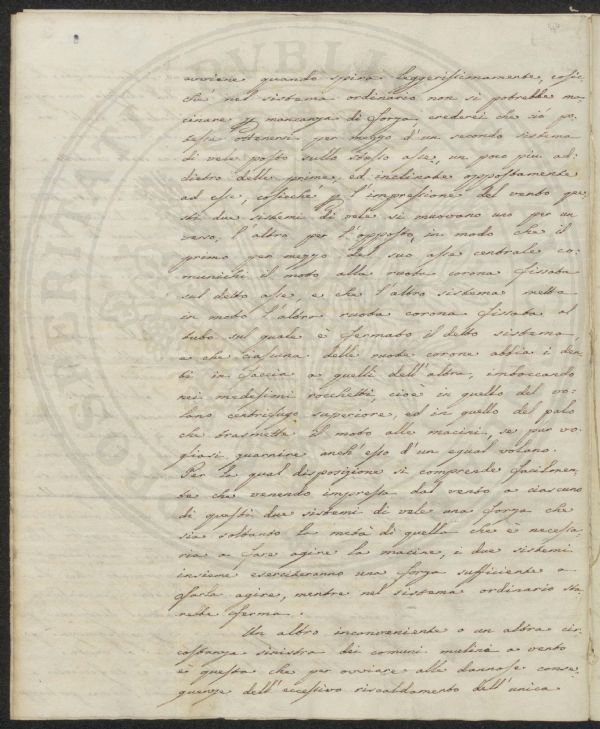 avviene quando spira leggerissimamente, cosic-
ché nel sistema ordinario non si potrebbe ma-
cinare p mancanza di forza, crederei che ciò po-
tesse ottenersi per mezzo d'un secondo sistema
di vele posto sullo stesso asse, un poco piu ad-
dietro delle prime, ed inclinate oppostamente
ad esse, cosicché p l'impressione del vento que
sti due sistemi di vele si muovano uno per un
verso, l'altro per l'opposto, in modo che il
primo per mezzo del suo asse centrale co-
munichi il moto alla ruota corona fissata
sul detto asse, e che l'altro sistema metta
in moto l'altra ruota corona fissata al
tubo sul quale è fermato il detto sistema,
e che ciascuna delle ruote corone abbia i den-
ti in faccia a quelli dell'altra, imboccando
nei medesimi rocchetti, cioè in quello del vo-
lano centrifugo superiore, ed in quello del palo
che trasmette il moto alle macini, se pur vo-
gliasi guarnire anch'esso d'un egual volano.
Per la qual disposizione si comprende facilmen-
te che venendo impressa dal vento a ciascuno
di questi due sistemi di vele una forza che
sia soltanto la metà di quella che è necessa-
ria a fare agire la macine, i due sistemi
insieme eserciteranno una forza sufficiente a
farla agire, mentre nel sistema ordinario sta-
rebbe ferma.
Un altro inconveniente o un altra cir-
costanza sinistra dei comuni mulini a vento
è questa che per ovviare alle dannose conse-
guenze dell'eccessivo riscaldamento dell'unica
PVBLI